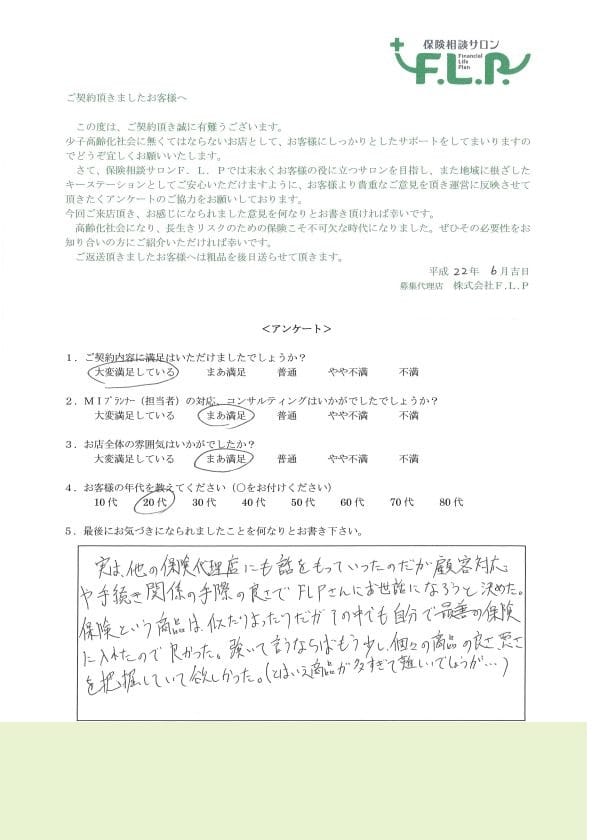 保険相談サロン
F.L.P.
Financial
Life
Plan
ご契約頂きましたお客様へ
この度は、ご契約頂き誠に有難うございます。
少子高齢化社会に無くてはならないお店として、お客様にしっかりとしたサポートをしてまいりますの
でどうぞ宜しくお願いいたします。
さて、保険相談サロンF．L．Pでは末永くお客様の役に立つサロンを目指し、また地域に根ざした
キーステーションとしてご安心いただけますように、お客様より貴重なご意見を頂き運営に反映させて
頂きたくアンケートのご協力をお願いしております。
今回ご来店頂き、お感じになられました意見を何なりとお書き頂ければ幸いです。
高齢化社会になり、長生きリスクのための保険こそ不可欠な時代になりました。ぜひその必要性をお
知り合いの方にご紹介いただければ幸いです。
ご返送頂きましたお客様へは粗品を後日送らせて頂きます。
平成 22年 6月吉日
募集代理店 株式会社F.L.P
＜アンケート＞
1．ご契約内容に満足はいただけましたでしょうか？
大変満足している まあ満足 普通 やや不満 不満
2．MIプランナー（担当者）の対応、コンサルティングはいかがでしたでしょうか？
大変満足している まあ満足 普通 やや不満 不満
3．お店全体の雰囲気はいかがでしたか？
大変満足している まあ満足 普通 やや不満 不満
4．お客様の年代を教えてください（○をお付けください）
10代 20代 30代 40代 50代 60代 70代 80代
5．最後にお気づきになられましたことを何なりとお書き下さい。
実は、他の保険代理店にも話をもっていったのだが顧客対応
や手続き関係の手際の良さでFLPさんにお世話になろうと決めた。
保険という商品は、似たりよったりだがその中でも自分で最善の保険
に入れたので良かった。強いて言うならばもう少し、個々の商品の良さ悪さ
を把握していて欲しかった。(とはいえ商品が多すぎて難しいでしょうが…)